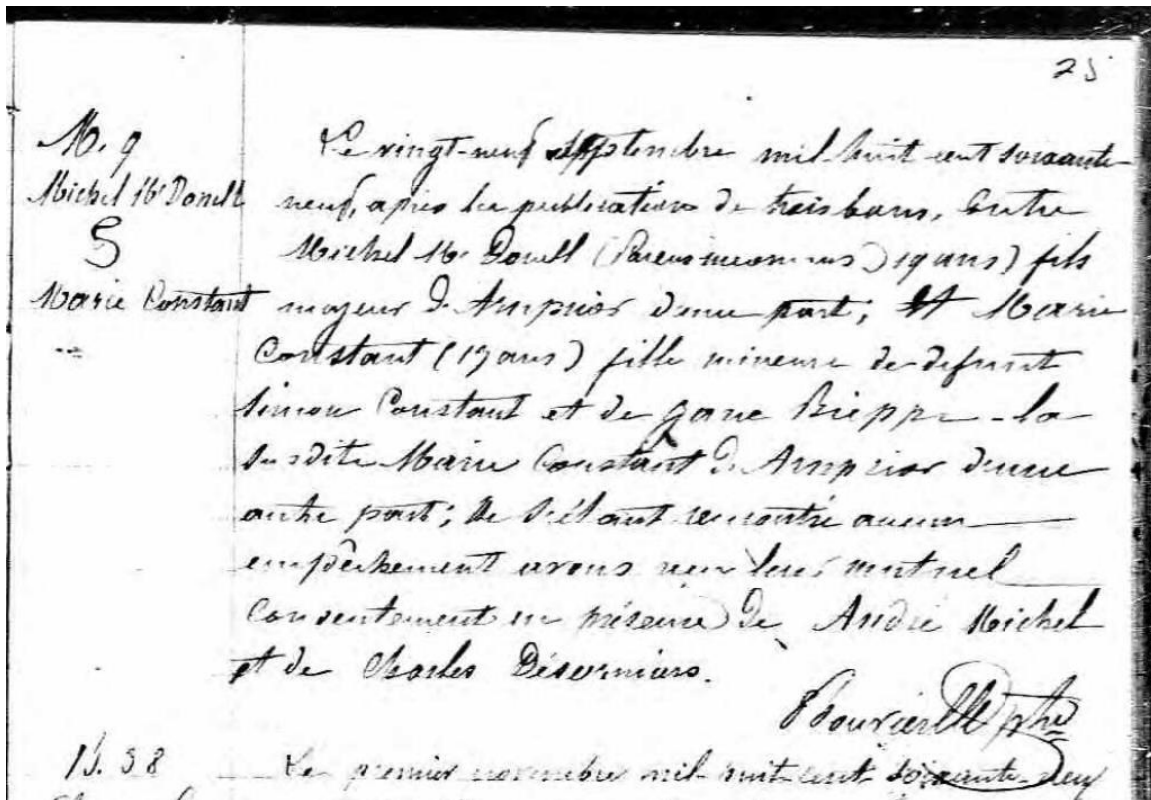 25
M. 9
Michel Mc Donell
&
Marie Constant
Le vingt-neuf septembre mil-huit-cent soixante-
neuf, après la publication de trois bans, Entre
Michel Mc Donell ( 19 ans) fils
majeur de Arnprior d'une part; et Marie
Constant (17 ans) fille mineure de defunt
Simon Constant et de Jane - la
susdite Marie Constant de Arnprior d'une
autre part; Ne s'étant rencontré aucun
empêchement avons reçu leur mutuel
consentement en présence de André Michel
et de Charles Désormiers.
ptre
B. 38
Le premier novembre mil-huit-cent soixante-neuf